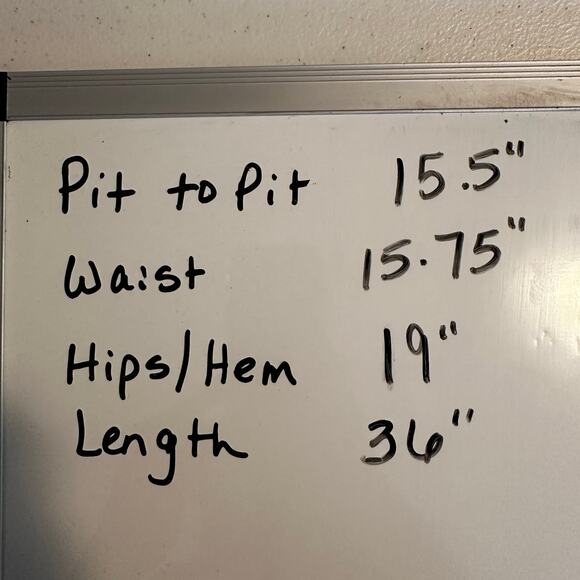 Pit to Pit 15.5"
Waist 15.75"
Hips/Hem 19"
Length 36"